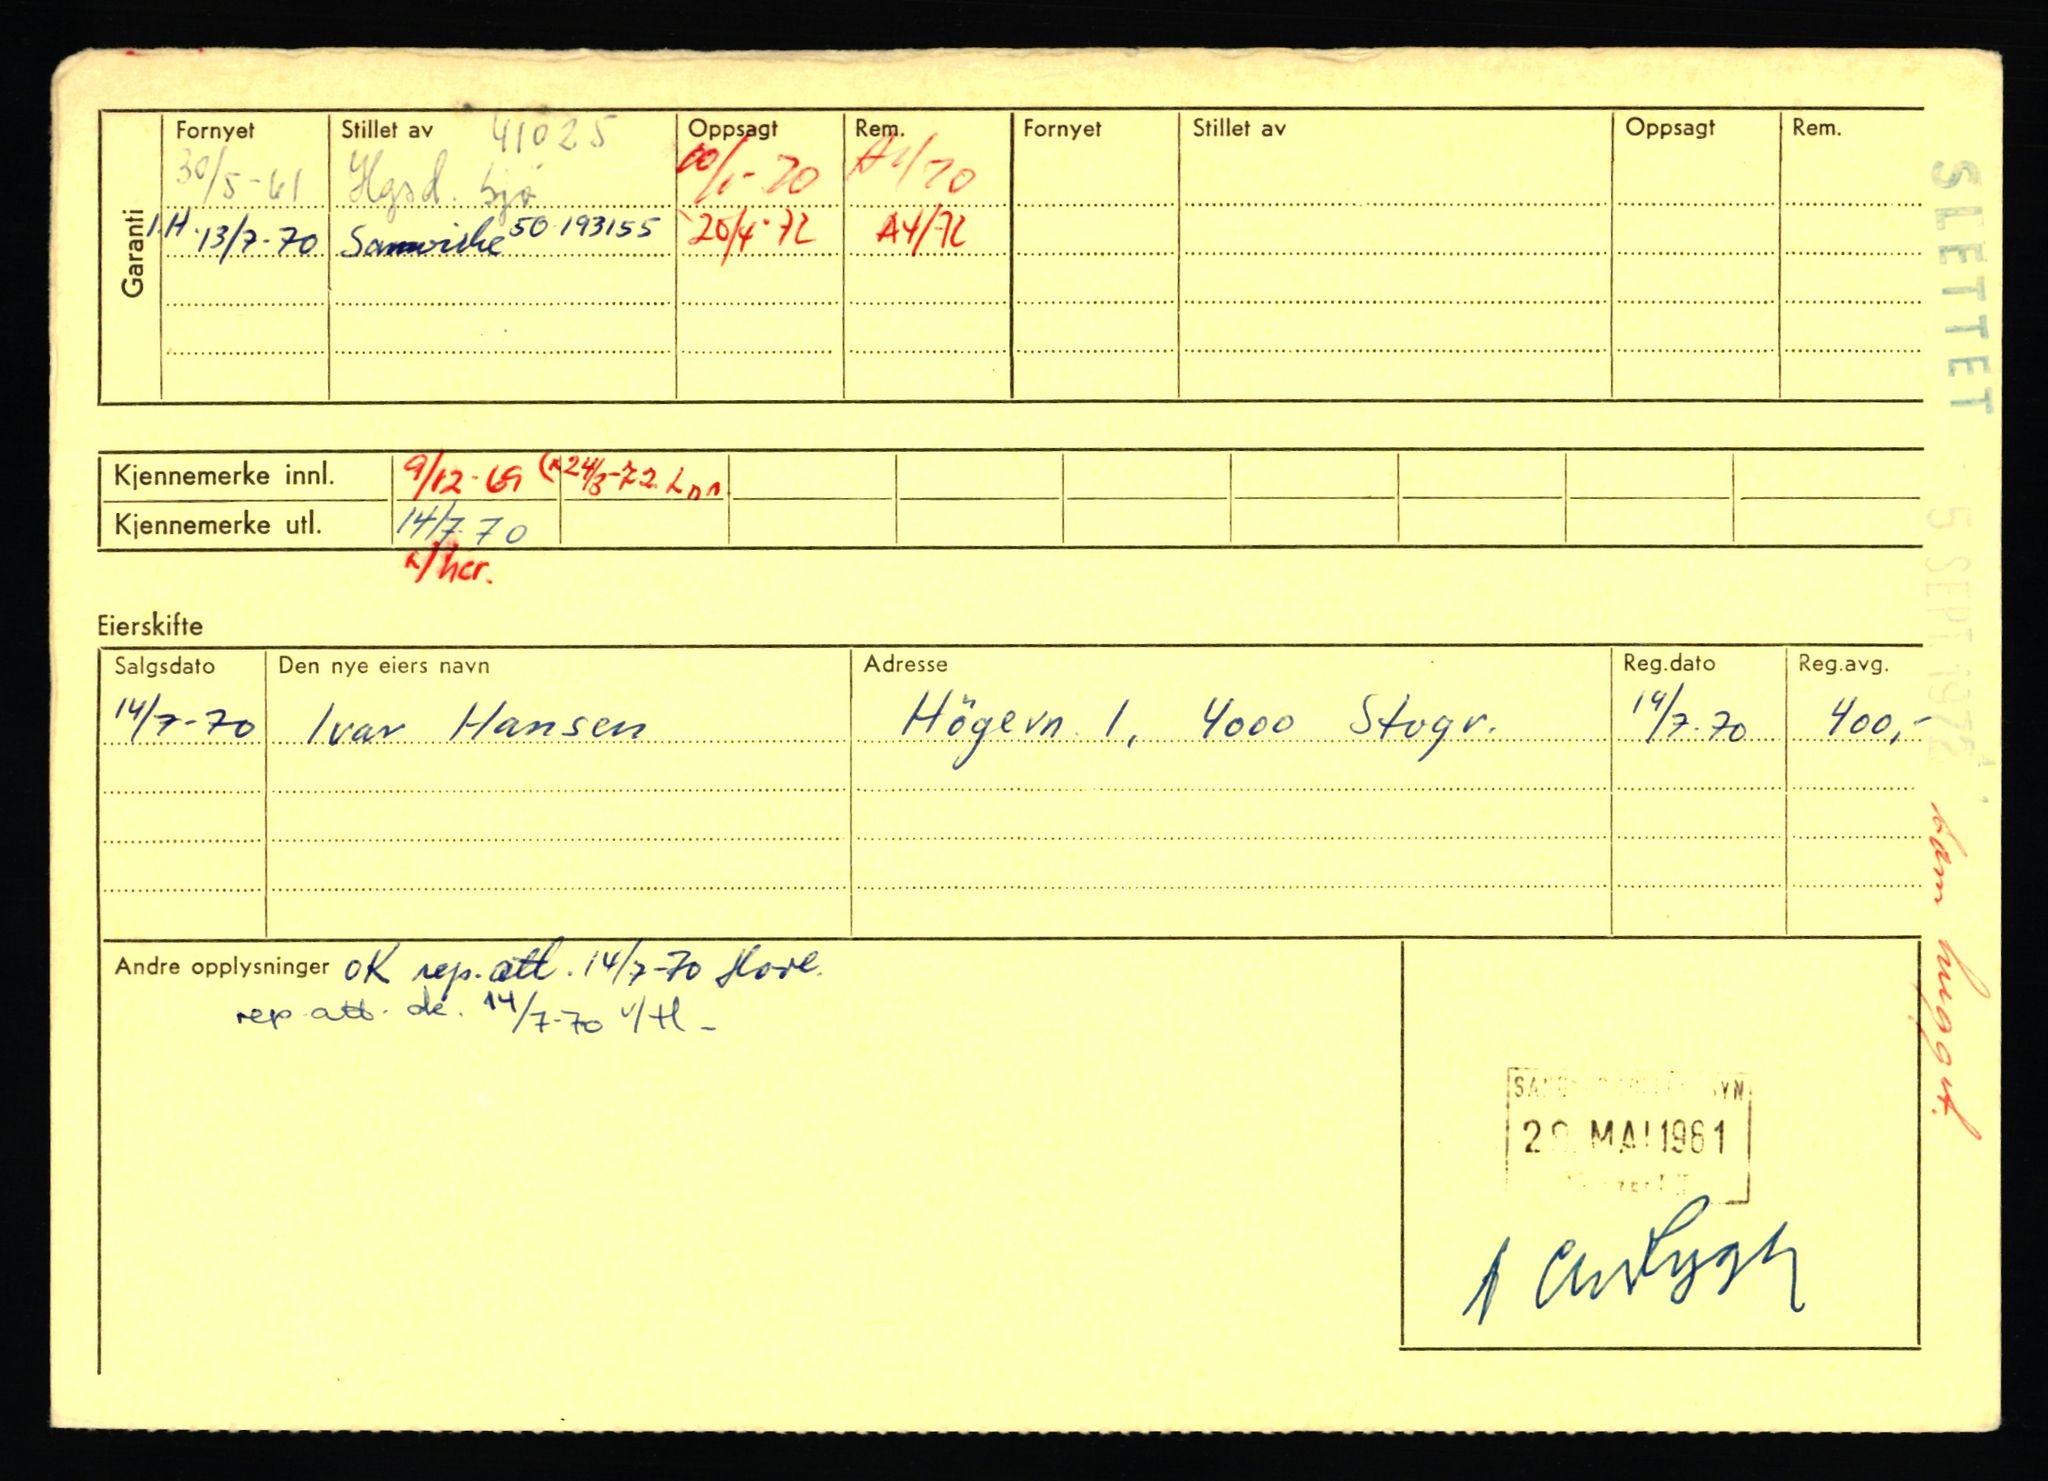 Garanti
Fornyet Stillet av 41025 Oppsagt Rem. Fornyet Stillet av Oppsagt Rem.
30/5-61 Hgsd. Sjø
I.H. 13/7-70 Samvirke 50.193155 20/4-72 A4/72
Kjennemerke innl. 9/12-69 (x 24/3-72
Kjennemerke utl. 14/7-70
x/her.
Eierskifte
Salgsdato Den nye eiers navn Adresse Reg.dato Reg.avg.
14/7-70 Ivar Hansen Högevn 1, 4000 Stvgr. 14/7-70 400,-
Andre opplysninger OK rep.att. 14/7-70
rep att. 14/7-70 v/H -
MAI 1961
SLETTET
5 SEPT 1972
hugget.